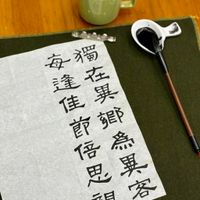 獨在異鄉為異客
每逢佳節倍思親